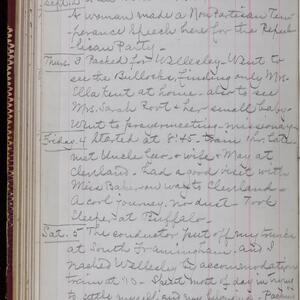 A woman made a Non Partisan Tem-
perance speech here for the Repub-
lican Party.
Thurs. 3 Packed for Wellesley. Went to
see the Bullocks, finding only Mrs.
Ella Tent at home. also to see
Mrs. Sarah & her small baby.
Went to prayermeeting - missionary
Friday, 4 Started at 8:45. train 1 hr. late
met Uncle Geo. & wife & May at
Cleveland. Had a good visit with
Miss Baker on way to Cleveland.
A cool journey, no dust. Took
sleeper at Buffalo.
Sat. 5 The conductor put off my trunks
at South Framingham, and I
reached Wellesley by accommodation
train at 9. Spent most of day in trying
to settle myself and my